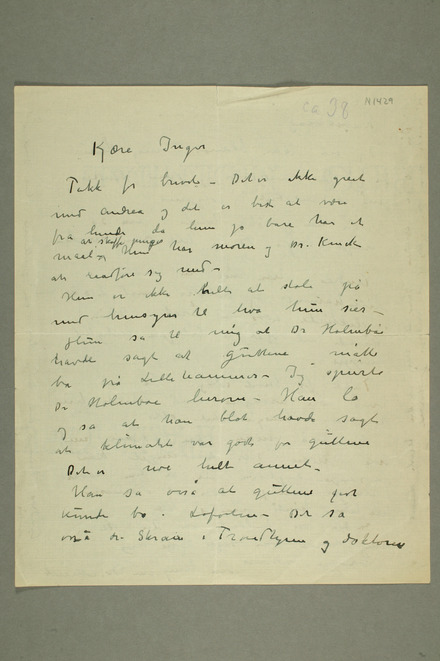 ca 38 N1429
Kjære Inger
Takk for brevet – Det er ikke greit
med Andrea og det er best at være
fra hende da hun jo bare har et
maal – at skaffe penge Hun har moren og Dr.
at raadføre sig med –
Hun er ikke helt at stole på
med hensyn til hva hun sier –
Hun sa til mig at Dr Holmboe
havde sagt at guttene måtte
bo på Lillehammer – Jeg spurte
Dr Holmboe herom – Han lo
og sa at han blot havde sagt
at klimatet var godt for guttene
Det er noe helt annet –
Han sa også at guttene godt
kunde bo i Lofoten – Det sa
også dr. i Trondhjem og doktoren